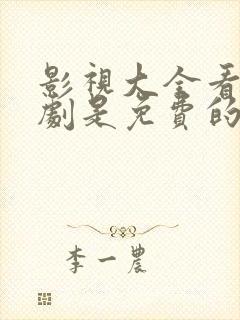 影視大全看
劇是免費的
李一農